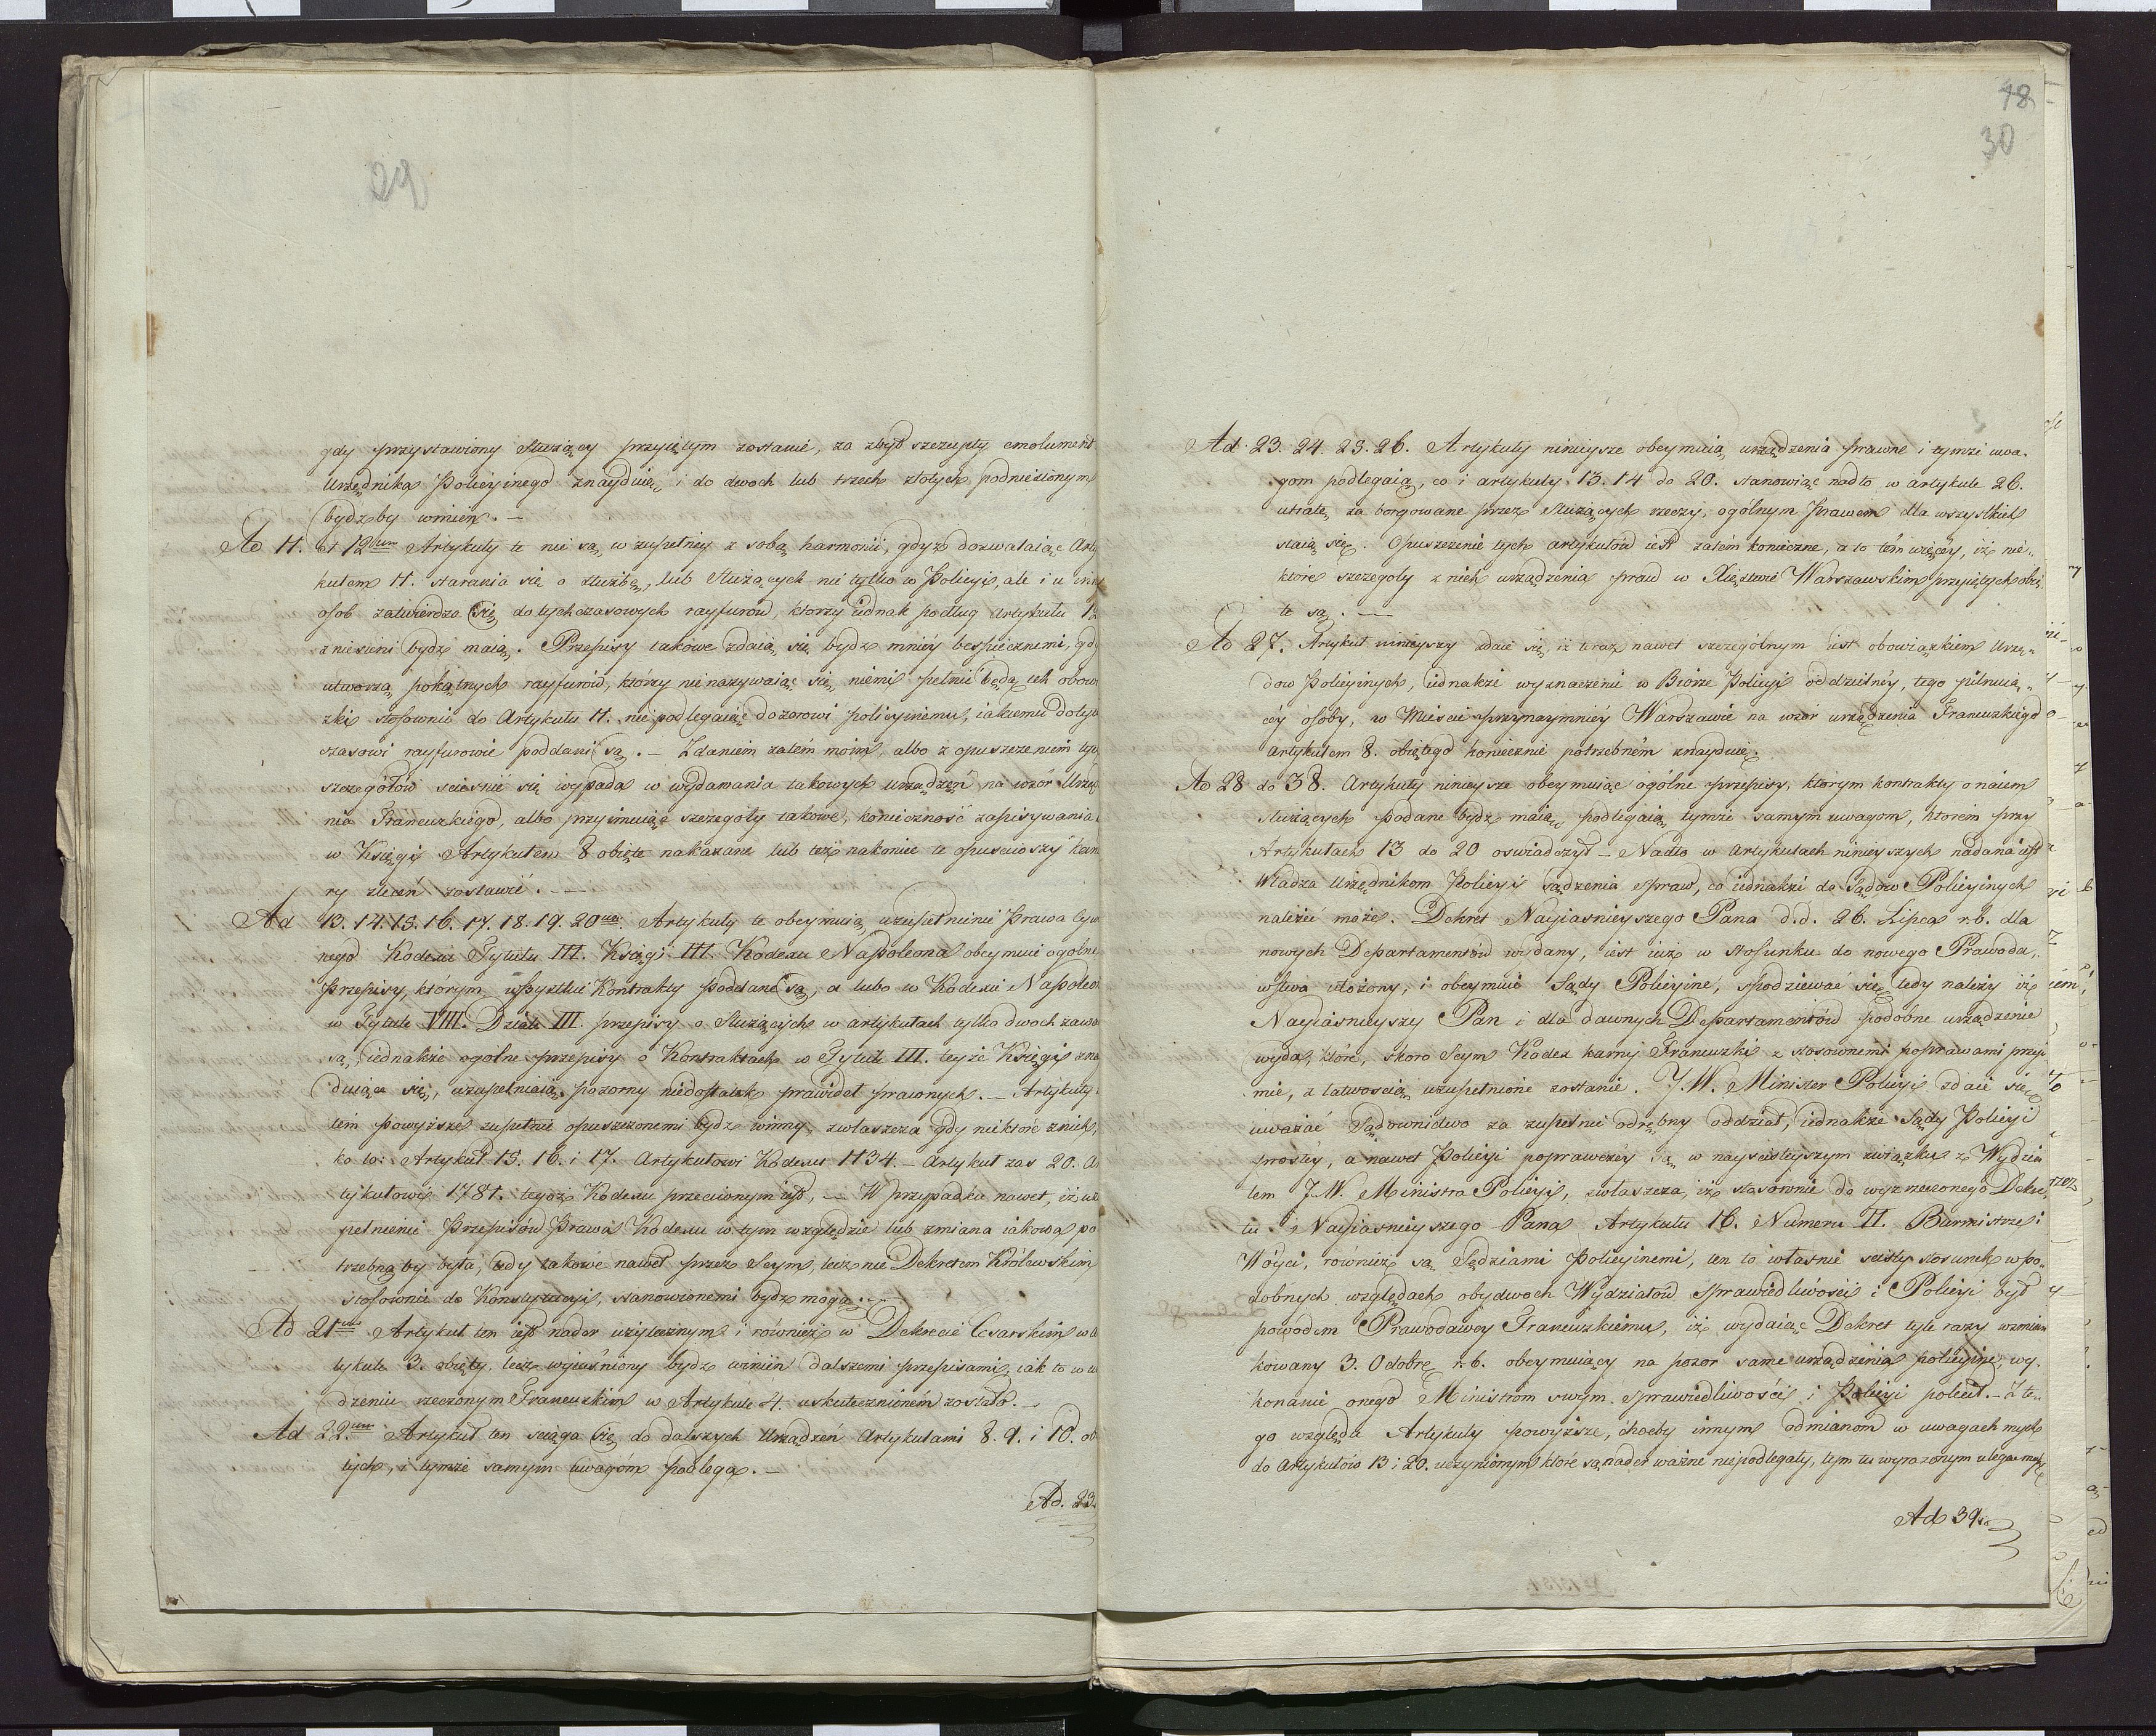 29
gdy przystawiony Służący przyiętym zostanie, za zbyt szczupły emolument
Urzędnika Policyinego znayduię, i do dwoch lub trzech złotych podniesionym
bydź by winien. —
Ad 11. et 12um Artykuły te nie są w zupełney z sobą harmonii, gdyż dozwalaiąc Arty
kułem 11. starania się o służbę, lub Służących nie tylko w Policyi, ale i u inny
osob zatwierdza się dotychczasowych rayfurów, ktorzy iednak podług Artykułu 12
zniesieni bydź maią. Przepisy takowe zdaią się bydź mniéy bespiecznemi, gdy
utworzą pokątnych rayfurów, którzy nie nazywaiąc się niemi pełnić będą ich obowi
zki stosownie do Artykułu 11. nie podlegaiąc dozorowi policyinemu, iakiemu dotyh
czasowi rayfurowie poddani są. — Zdaniem zatém moim, albo z opuszczeniem tyc
szczegółów scieśnić się wypada w wydawania takowych urządzeń na wzór Urzą
nia Francuzkiego, albo przyimuiąc szczegoły takowe, konieczność zapisywania
w Księgi Artykułem 8 obięte nakazane lub też nakoniec te opuściwszy kan
ry zleceń zostawić. —
Ad 13. 14. 15. 16. 17. 18. 19. 20um. Artykuły te obeymuią uzupełnienie Prawa Cyw
nego Kodexu Tytułu III. Księgi III. Kodexu Napoleona obeymuie ogolne
Przepisy, którym wszystkie Kontrakty poddane są, a lubo w Kodexie Napoleo
w Tytule VIII. Dziale III. przepisy o Służących w artykułach tylko dwoch zawa
są, iednakże ogolne przepisy o Kontraktach w Tytule III. teyże Księgi zna
duiące się, uzupełniaią pozorny niedostatek prawideł prawnych. — Artykuły
tém powyższe zupełnie opuszczonemi bydź winny, zwłaszcza gdy niektore z nich,
ko to: Artykuł 15. 16. i 17. Artykułowi Kodexu 1134. — Artykuł zas 20. A
tykułowi 1781. tegoż Kodexu przeciwnym iest, — W przypadku nawet, iż uz
pełnienie Przepisów Prawa Kodexu w tym względzie lub zmiana iakowa po
trzebną by była, tedy takowe nawet przez Seym, lecz nie Dekretem Królewskim
stosownie do Konstytucyi, stanowionemi bydź mogą. —
Ad 21um Artykuł ten iest nader użytecznym i również w Dekrecie Cesarskim w A
tykule 3. obięty, lecz wyiaśniony bydź winien dalszemi przepisami, iak to w u
dzeniu rzeczonym Francuzkim w Artykule 4. uskutecznioném zostało. —
Ad 22um Artykuł ten ściąga się do dalszych Urządzeń Artykułami 8. 9. i 10. ob
tych, i tymże samym uwagom podlega. —
Ad. 23.
18
30
Ad 23. 24. 25. 26. Artykuły ninieysze obeymuią urządzenia prawne i tymże uwa-
gom podlegaią, co i artykuły 13. 14 do 20. stanowiąc nadto w artykule 26.
utratę za borgowane przez Służących rzeczy, ogolnym Prawem dla wszystkich
staią się. Opuszczenie tych artykułów iest zatém konieczne, a to tém więcéy, iż nie-
które szczegoły z nich urządzenia praw w Xięztwie Warszawskim przyiętych obię-
te są. —
Ad 27. Artykuł ninieyszy zdaie się, iż teraz nawet szczególnym iest obowiązkiem Urzę-
dow Policyinych, iednakże wyznaczenie w Biorze Policyi oddzielnéy, tego pilnuią-
céy osoby, w Mieście przynaymniéy Warszawie na wzór urządzenia Francuzkiego
artykułem 8. obiętego koniecznie potrzebném znayduię.
Ad 28 do 38. Artykuły ninieysze obeymuiąc ogólne przepisy, którym kontrakty o naiem
służących podane bydź maią, podlegaią tymże samym uwagom, ktorem przy
Artykułach 13 do 20 oswiadczył — Nadto w artykułach ninieyszych nadana iest
Władza Urzędnikom Policyi sądzenia spraw, co iednakże do Sądow Policyinych
należeć może. Dekret Nayiaśnieyszego Pana d.d. 26. Lipca r.b. dla
nowych Departamentów wydany, iest iuż w stosunku do nowego Prawoda-
wstwa ułożony, i obeymuie Sądy Policyine, spodziewać się tedy należy iż
Nayiaśnieyszy Pan i dla dawnych Departamentów podobne urządzenie
wyda, które, skoro Seym Kodex karny Francuzki z stosownemi poprawami przyi
mie, z łatwością uzupełnione zostanie. J.W. Minister Policyi zdaie się
uważać Sądownictwo za zupełnie odrębny oddział, iednakże Sądy Policyi
prostéy, a nawet Policyi poprawczéy są w nayściśleyszym związku z Wydzia
łem J.W. Ministra Policyi, zwłaszcza, iż stosownie do wyz rzeczonego Dekre-
tu Nayiaśnieyszego Pana Artykułu 16. Numeru II. Burmistrze i
Wóyci, również są Sędziami Policyinemi, ten to właśnie ścisły stosunek w po-
dobnych względach obydwoch Wydziałów Sprawiedliwości i Policyi był
powodem Prawodawcy Francuzkiemu, iż wydaiąc Dekret tyle razy wzmian
kowany 3. Octobra r.b. obeymuiący na pozor same urządzenia policyine, wy-
konanie onego Ministrom swym Sprawiedliwości i Policyi polecił. — Z te-
go względu Artykuły powyższe, choćby innym odmianom w uwagach mych
do Artykułów 13 i 20. uczynionym które są nader ważne nie podlegały, tym tu wyrażonym ulegać mogą
Ad 39.